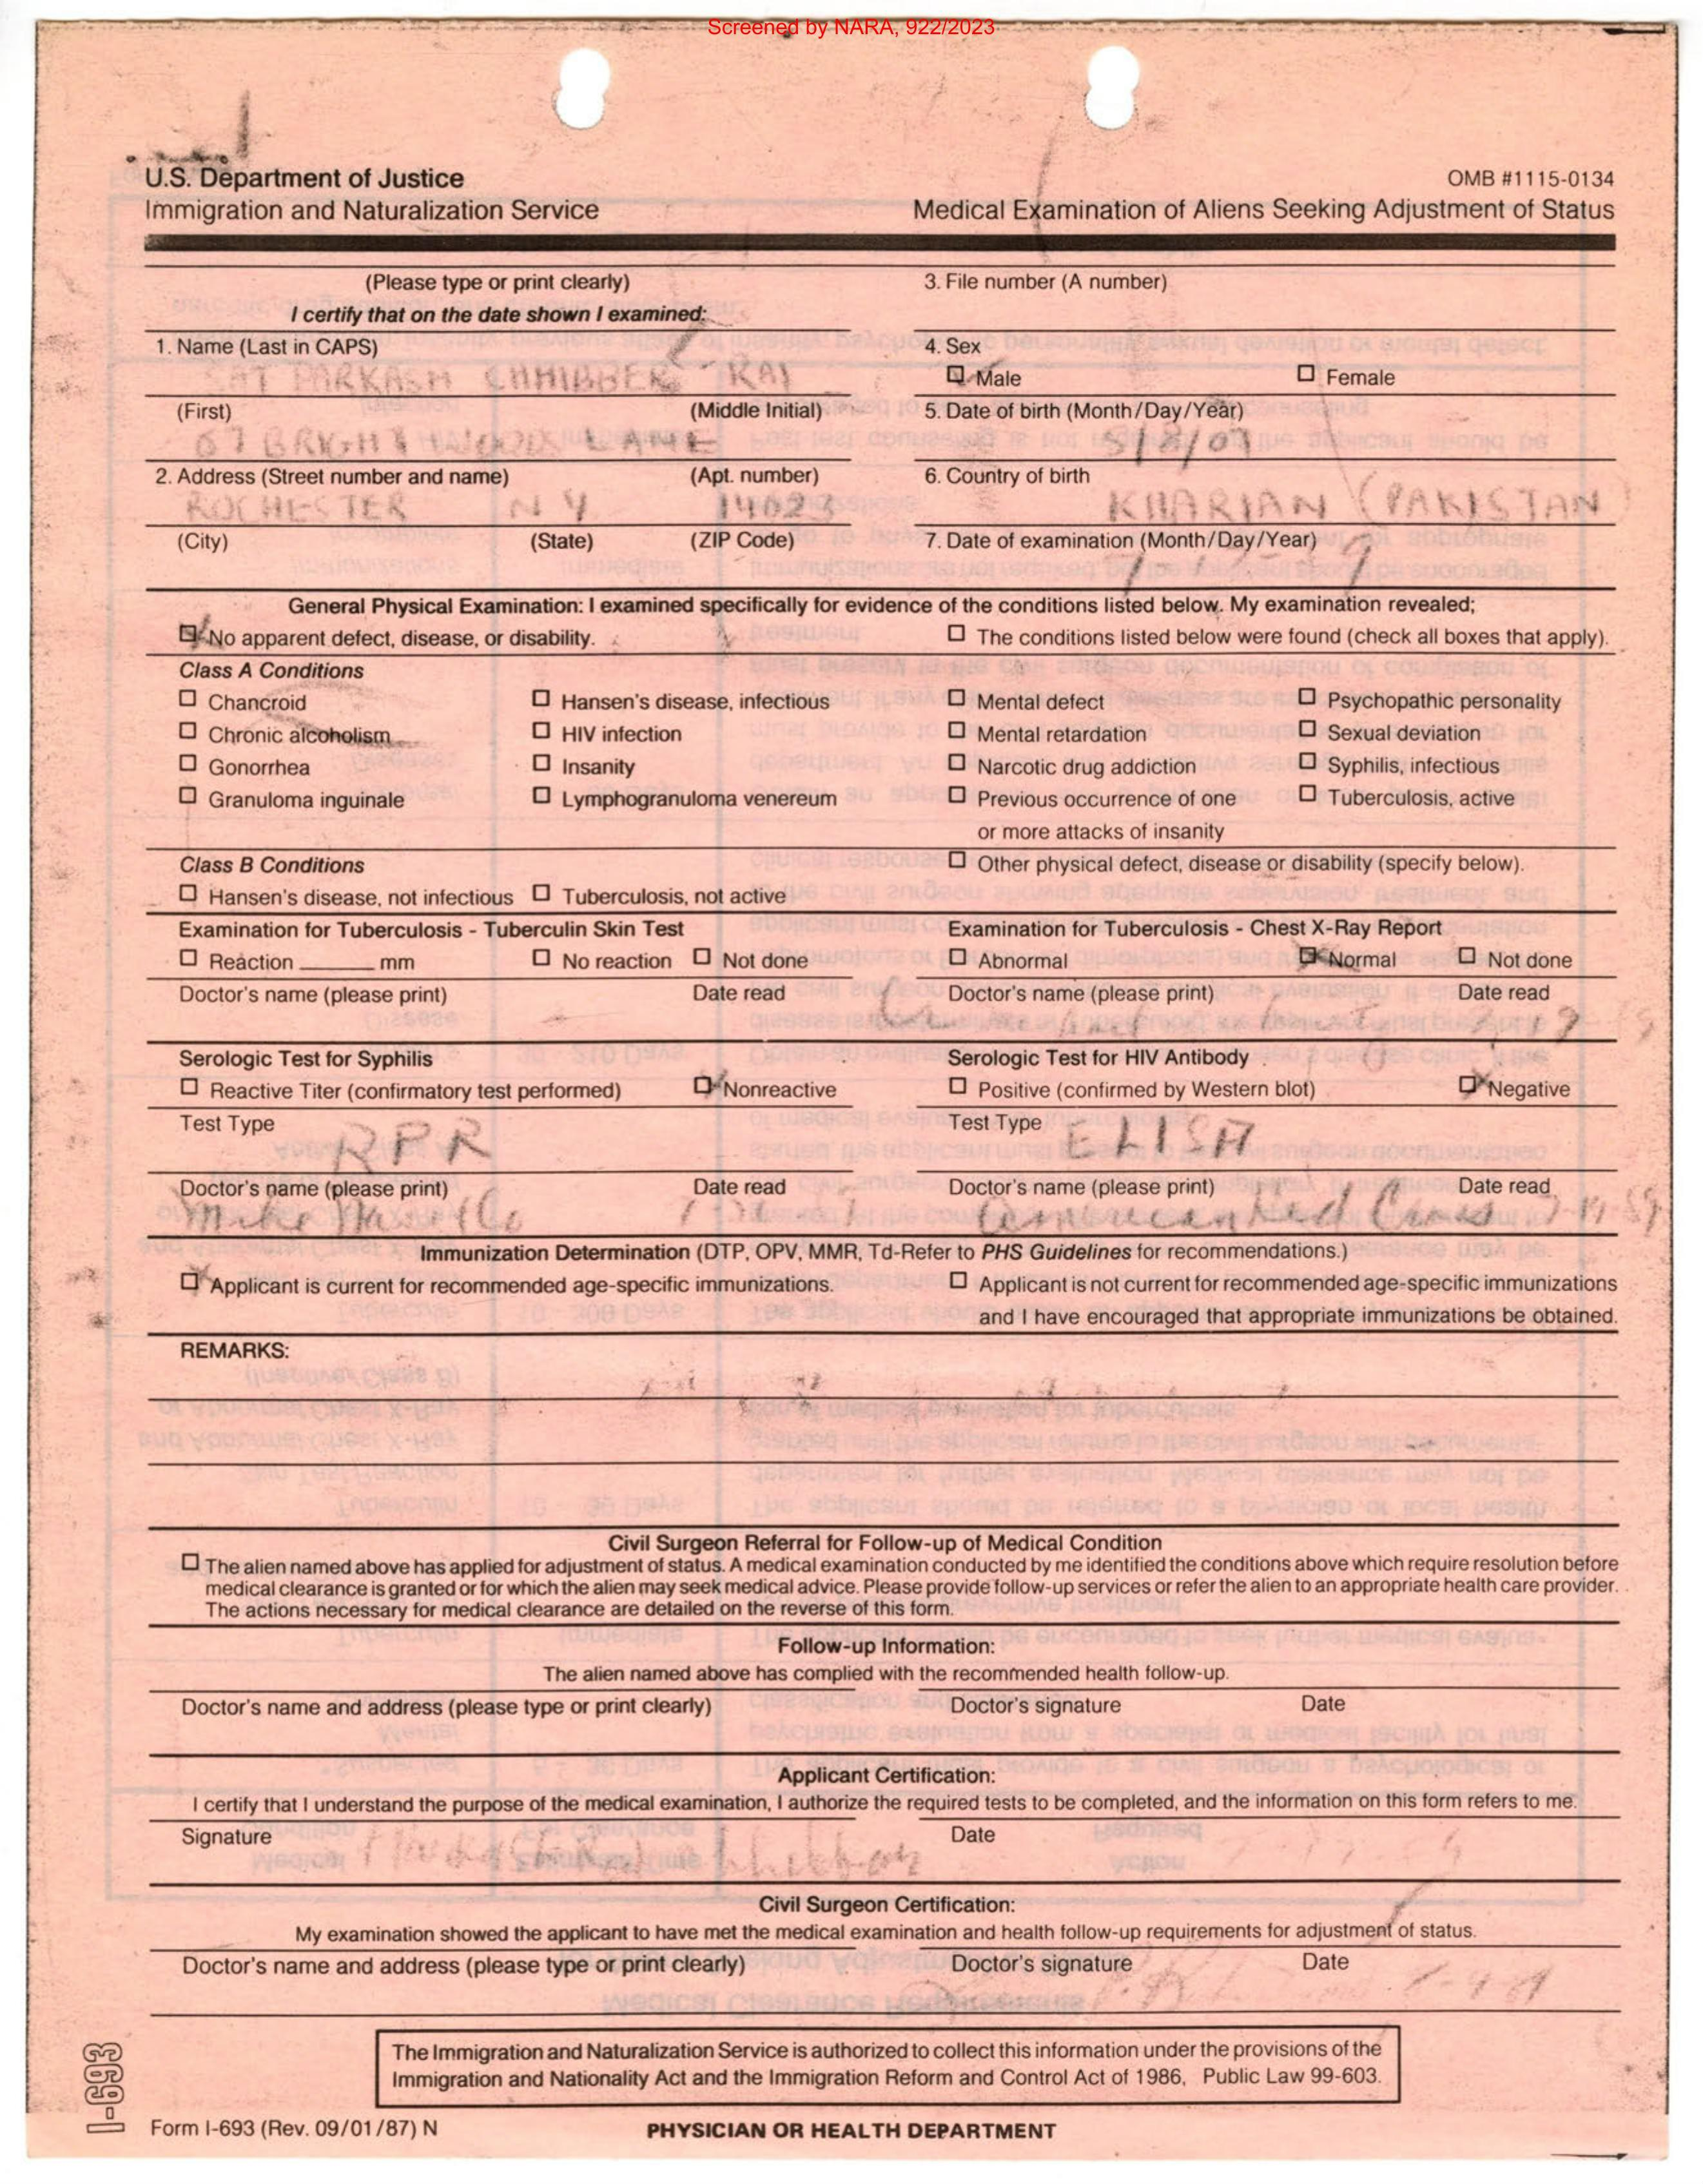 Screened by NARA, 922/2023
U.S. Department of Justice
Immigration and Naturalization Service
OMB #1115-0134
Medical Examination of Aliens Seeking Adjustment of Status
(Please type or print clearly)
I certify that on the date shown I examined:
3. File number (A number)
1. Name (Last in CAPS)
SAT PARKASH CHHIBBER RAI
4. Sex
Male
Female
(First) (Middle Initial)
67 BRIGHT WOOD LANE
5. Date of birth (Month/Day/Year)
2. Address (Street number and name) (Apt. number)
ROCHESTER N Y 14623
6. Country of birth
KHARIAN (PAKISTAN)
(City) (State) (ZIP Code)
7. Date of examination (Month/Day/Year)
General Physical Examination: I examined specifically for evidence of the conditions listed below. My examination revealed;
No apparent defect, disease, or disability.
The conditions listed below were found (check all boxes that apply).
Class A Conditions
Chancroid
Hansen's disease, infectious
Mental defect
Psychopathic personality
Chronic alcoholism
HIV infection
Mental retardation
Sexual deviation
Gonorrhea
Insanity
Narcotic drug addiction
Syphilis, infectious
Granuloma inguinale
Lymphogranuloma venereum
Previous occurrence of one
or more attacks of insanity
Tuberculosis, active
Class B Conditions
Other physical defect, disease or disability (specify below).
Hansen's disease, not infectious
Tuberculosis, not active
Examination for Tuberculosis - Tuberculin Skin Test
Reaction ______ mm
No reaction
Not done
Doctor's name (please print) Date read
Examination for Tuberculosis - Chest X-Ray Report
Abnormal
Normal
Not done
Doctor's name (please print) Date read
Serologic Test for Syphilis
Reactive Titer (confirmatory test performed)
Nonreactive
Test Type
RPR
Doctor's name (please print) Date read
Mike
Serologic Test for HIV Antibody
Positive (confirmed by Western blot)
Negative
Test Type
ELISA
Doctor's name (please print) Date read
American Med 7-14-89
Immunization Determination (DTP, OPV, MMR, Td-Refer to PHS Guidelines for recommendations.)
Applicant is current for recommended age-specific immunizations.
Applicant is not current for recommended age-specific immunizations
and I have encouraged that appropriate immunizations be obtained.
REMARKS:
Civil Surgeon Referral for Follow-up of Medical Condition
The alien named above has applied for adjustment of status. A medical examination conducted by me identified the conditions above which require resolution before
medical clearance is granted or for which the alien may seek medical advice. Please provide follow-up services or refer the alien to an appropriate health care provider.
The actions necessary for medical clearance are detailed on the reverse of this form.
Follow-up Information:
The alien named above has complied with the recommended health follow-up.
Doctor's name and address (please type or print clearly) Doctor's signature Date
Applicant Certification:
I certify that I understand the purpose of the medical examination, I authorize the required tests to be completed, and the information on this form refers to me.
Signature Date
Civil Surgeon Certification:
My examination showed the applicant to have met the medical examination and health follow-up requirements for adjustment of status.
Doctor's name and address (please type or print clearly) Doctor's signature Date
The Immigration and Naturalization Service is authorized to collect this information under the provisions of the
Immigration and Nationality Act and the Immigration Reform and Control Act of 1986, Public Law 99-603.
I-693
Form I-693 (Rev. 09/01/87) N
PHYSICIAN OR HEALTH DEPARTMENT